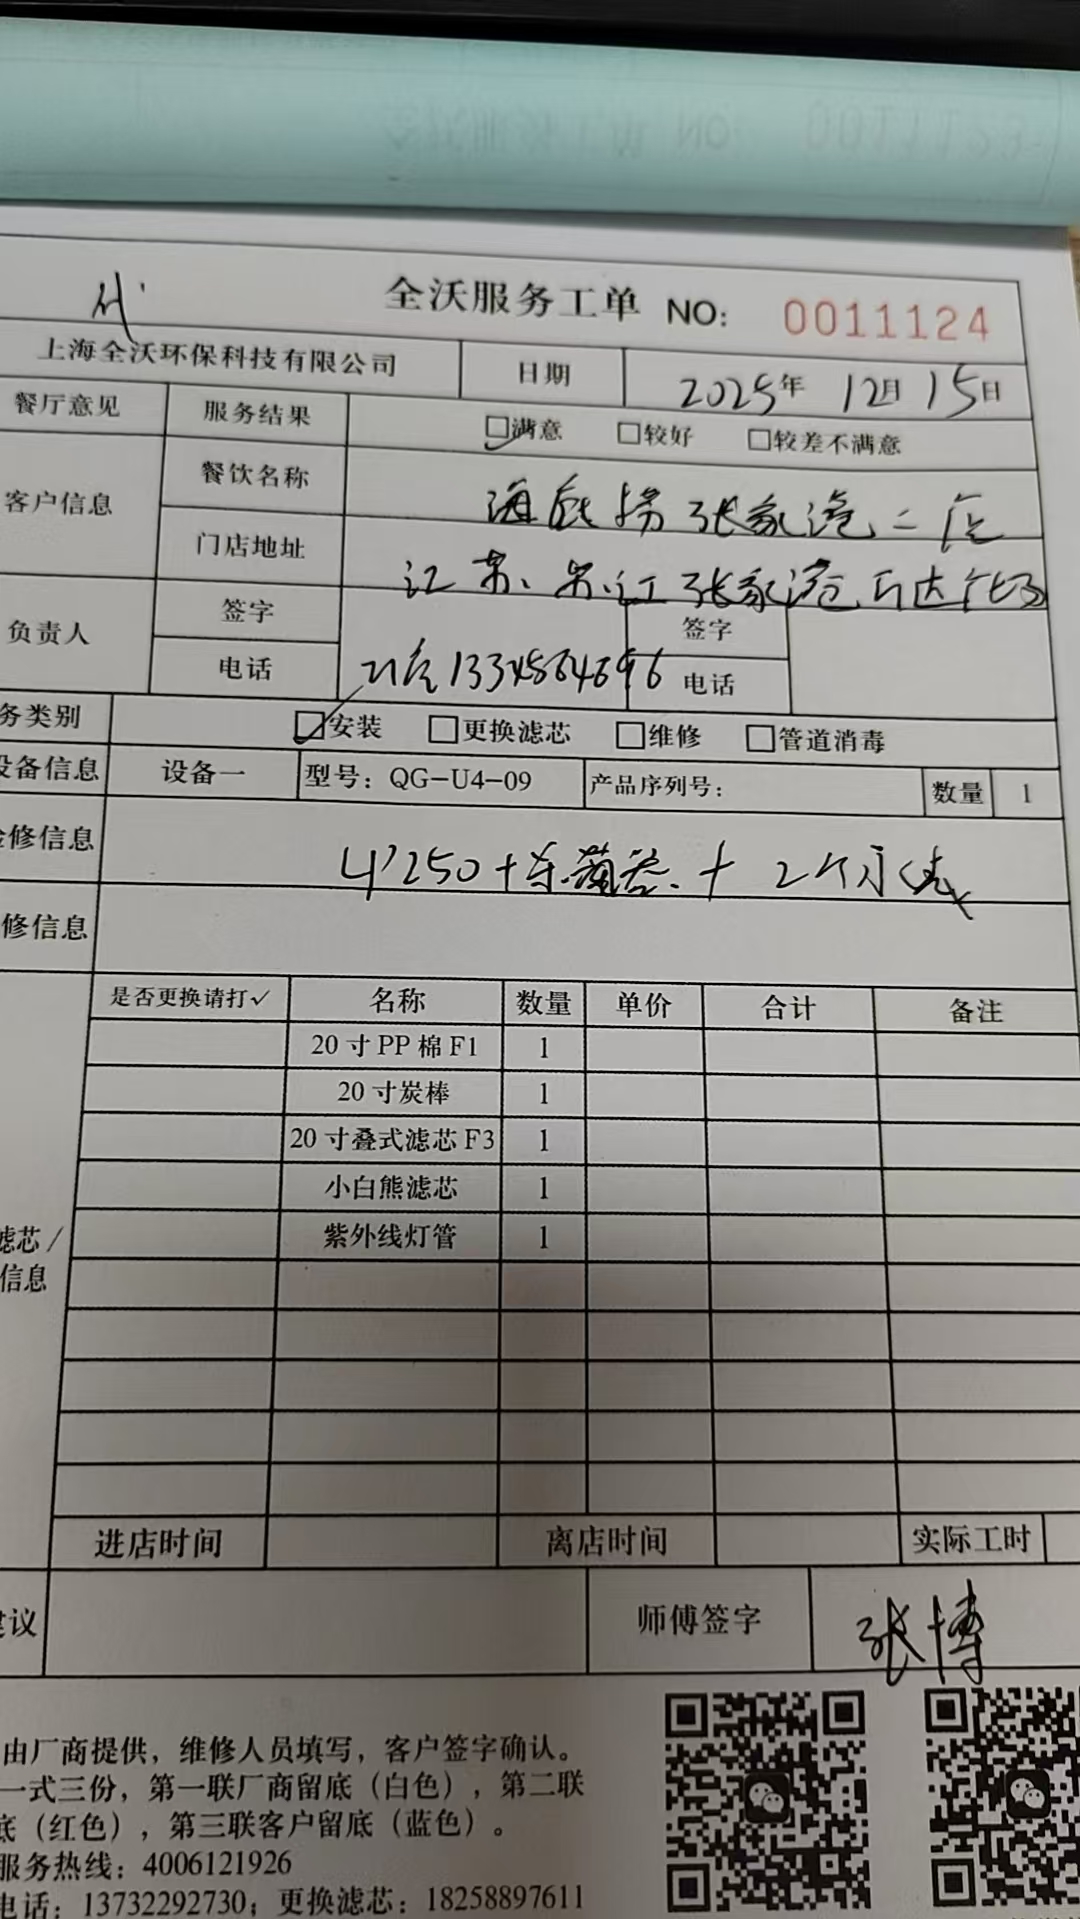 全沃服务工单 NO: 0011124
上海全沃环保科技有限公司 日期 2025年 12月 15日
餐厅意见 服务结果 ☑满意 □较好 □较差不满意
客户信息 餐饮名称 海底捞张家港二店
门店地址 江苏、 张家港万达广场
负责人 签字 签字
电话 电话
务类别 ☑安装 □更换滤芯 □维修 □管道消毒
设备信息 设备一 型号：QG-U4-09 产品序列号： 数量 1
检修信息 4'250+ + 2个
修信息
是否更换请打✓ 名称 数量 单价 合计 备注
20寸PP棉F1 1
20寸炭棒 1
20寸叠式滤芯F3 1
小白熊滤芯 1
滤芯/ 紫外线灯管 1
信息
进店时间 离店时间 实际工时
建议 师傅签字 张博
由厂商提供，维修人员填写，客户签字确认。
一式三份，第一联厂商留底（白色），第二联
底（红色），第三联客户留底（蓝色）。
服务热线：4006121926
电话：13732292730；更换滤芯：18258897611